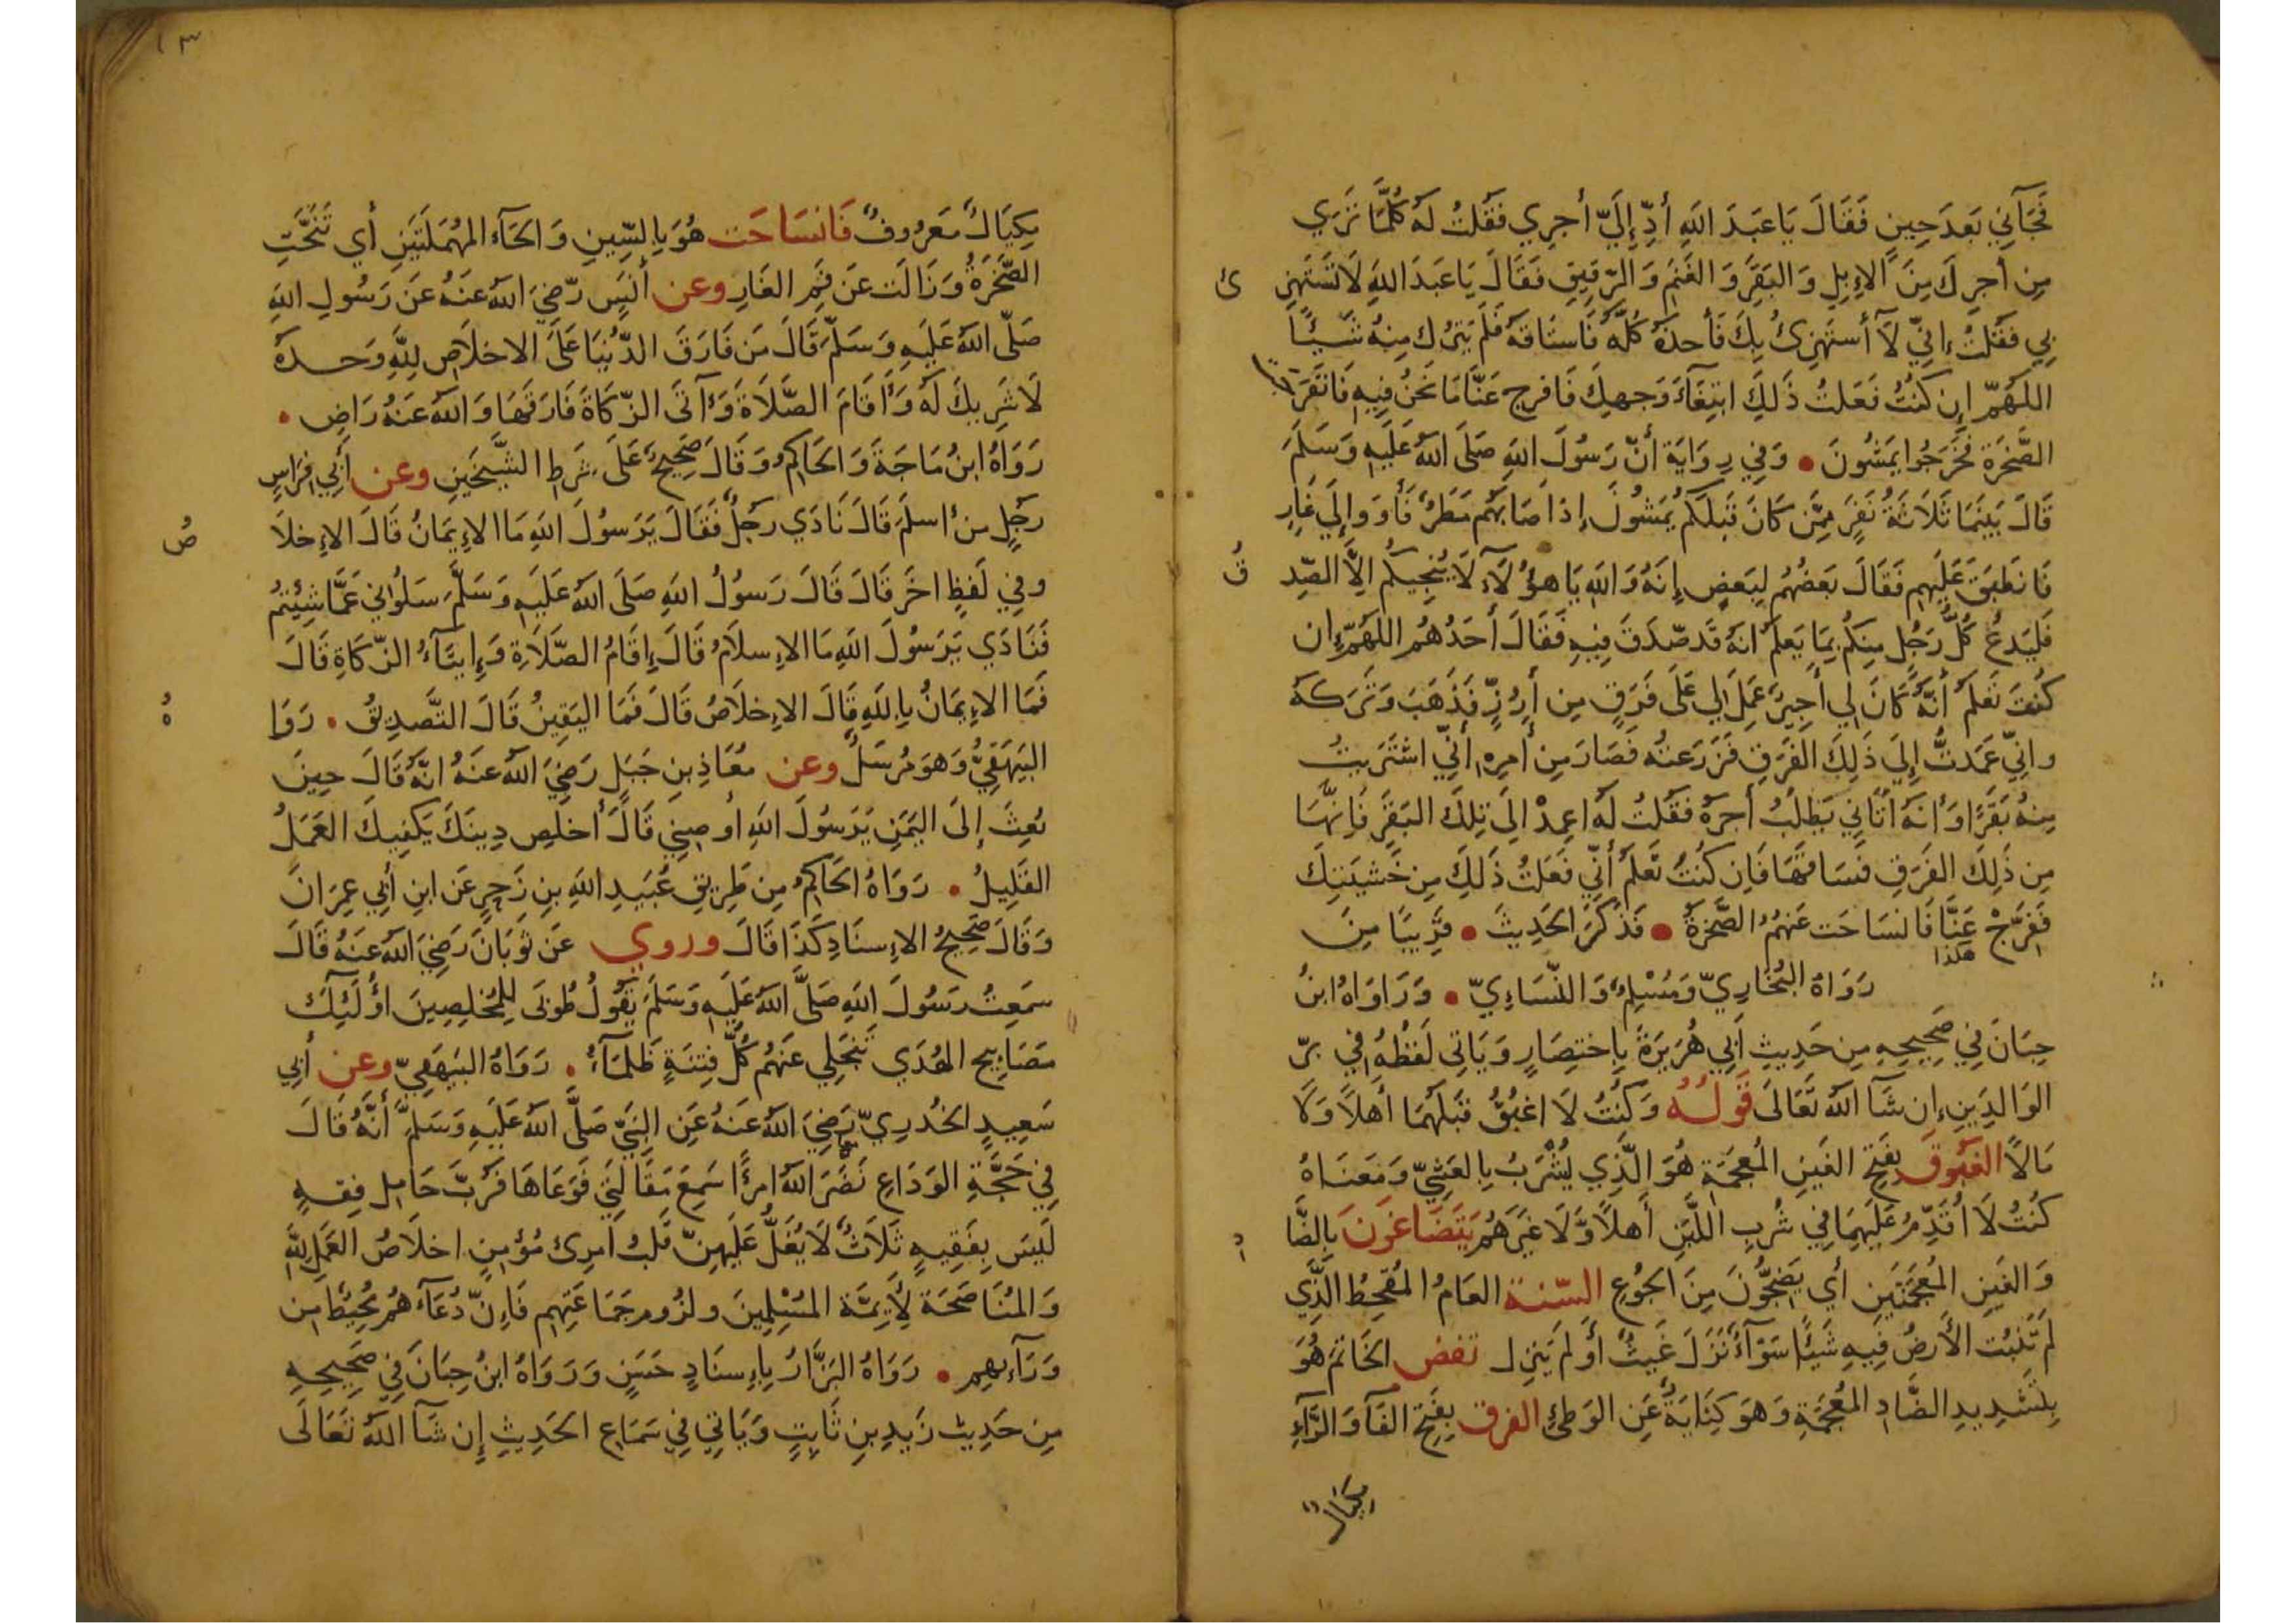 فَجَآنِي بَعدَ حِينٍ فَقَالَ يَا عَبدَ اللَّهِ أَدِّ إِلَيَّ أَجرِي فَقُلتُ لَهُ كُلَّمَا تَرَي
مِن أَجرِكَ مِنَ الإِبِلِ وَ البَقَرِ وَ الغَنَمِ وَ الرَّقِيقِ فَقَالَ يَا عَبدَ اللَّهِ لَا تَستَهزِ ئ
بِي فَقُلتُ إِنِّي لَآ أَستَهزِئُ بِكَ فَأَخذَهُ كُلَّهُ فَاستَاقَهُ فَلَم يَترُك مِنهُ شَيئًا
اللَّهُمَّ إِن كُنتُ فَعَلتُ ذَلِكَ ابتِغَآءَ وَجهِكَ فَافرِج عَنَّا مَا نَحنُ فِيهِ فَانفَرَجَت
الصَّخرَة فَخَرَجُوا يَمشُونَ • وَفِي رِوَايَة أَنَّ رَسُولَ اللَّهِ صَلَّى اللَّهُ عَلَيهِ وَسَلَمَ
قَالَ بَينَمَا ثَلَاثَةُ نَفَرٍ مِمَّن كَانَ قَبلَكُم يَمشُونَ إِذ أَصَابَهُم مَطَرٌ فَأَوَوا إِلَي غَارٍ
فَانطَبَقَ عَلَيهِم فَقَالَ بَعضُهُم لِبَعضٍ إِنَهُ وَ اللَّهِ يَا هؤُلَآءِ لَا يُنجِيكُم إِلَّا الصِّد قُ
فَليَدعُ كُلُّ رَجُلٍ مِنكُم بِمَا يَعلَمُ انَهُ قَد صَدَقَ فِيهِ فَقَالَ أَحَدُهُم اللَّهُمَّ إِن
كُنتَ تَعلَمُ أَنَّهُ كَانَ لِي أَجِيرٌ عَمِلَ لِي عَلَى فَرَقٍ مِن أَرُزٍّ فَذَهَبَ وَ تَرَكَهُ
وانِّي عَمَدتُ إِلَي ذَلِكَ الفَرَقِ فَزَرَعتُه فَصَارَ مِن أَمرِهِ أَنِّي اشتَرَيتُ
مِنهُ بَقَرًا وَأَنَهُ أَتَانِي يَطلُبُ أَجرَهُ فَقُلتُ لَهُ اعمِدْ إِلَى تِلكَ البَقَرِ فَإِنَّهَا
مِن ذَلِكَ الفَرَقِ فَسَاقَهَا فَإِن كُنتَ تَعلَمُ أَنِّي فَعَلتُ ذَلِكَ مِن خَشيَتِكَ
فَفَرِّجْ عَنَّا فَانسَاحَت عَنهُمُ الصَّخرَةُ • فَذَكَرَ الحَدِيثَ • قَرِيبًا مِن
هَذا
رَوَاهُ البُخَارِيّ وَ مُسْلِمٌ وَ النَّسَاءِيّ • وَ رَاوَاهُ ابنُ
حِبَانَ فِي صَحِيحِهِ مِن حَدِيثِ أَبِي هُرَيرَةَ بِاختِصَارٍ وَ يَاتِي لَفظُهُ فِي بِرّ
الوَالِدَينِ إِن شَآ اللَّهُ تَعَالَى قَولُهُ وَ كُنتُ لَا اغبُقُ قَبلَهُمَا أَهلًا وَلَا
مَالًا الغَبُوقُ بِفَتحِ الغَينِ المُعجَمَةِ هُوَ الَّذِي يُشْرَبُ بِالعَشِيّ وَ مَعنَاهُ
كُنتُ لَا أُقَدِّمُ عَلَيهِمَا فِي شُربِ اللَّبَنِ أَهلًا وَّلَا غَيرَهُم يَتَضَاغَونَ بِالضَّا دِ
وَ الغَينِ المُعجَمَتَينِ أَي يَضِجُّونَ مِنَ الجُوعِ السّنة العَامُ المُقحِطُ الَّذِي
لَم تُنبُت الأَرضُ فِيهِ شَيئًا سَوَآءٌ نَزَلَ غَيثٌ أَو لَم يَنزِل تفض الخَاتمَ هُوَ
بِتَشدِيدِ الضَّادِ المُعجَمَةِ وَهوَ كِنَايَةٌ عَنِ الوَطئِ الفرق بِفَتحِ الفَآ وَ الرَّآءِ
مِكيَالٌ
٣١
مِكيَالٌ مَعرُوفٌ فَانسَاحَت هُوَ بِالسِّينِ وَ الحَآء المُهمَلَتَينِ أَي تَنَحَّتِ
الصَّخرَةُ وَ زَالَت عَن فَمِ الغَارِ وعن أَنَسٍ رَّضِيَ اللَّهُ عَنهُ عَن رَسُولِ اللَّهِ
صَلَّى اللَّهُ عَلَيهِ وَ سَلَّمَ قَالَ مَن فَارَقَ الدُّنيَا عَلَى الاخلَاصِ لِلَّهِ وَحدَهُ
لَا شَرِيكَ لَهُ وَأَقَامَ الصَّلَاةَ وَآتَى الزَّكَاةَ فَارَقَهَا وَ اللَّهُ عَنهُ رَاضٍ •
رَوَاهُ ابنُ مَاجَةَ وَ الحَاكِمُ وَ قَالَ صَحِيحٌ عَلَى شَرطِ الشَّيخَينِ وعن أَبِي فِرَاسٍ
رَجُلٍ مِن اسلَمَ قَالَ نَادَي رَجُلٌ فَقَالَ يَرَسُولَ اللَّهِ مَا الإِيمَانُ قَالَ الإِخلَا صُ
وفِي لَفظٍ اخَرَ قَالَ قَالَ رَسُولُ اللَّهِ صَلَّى اللَّهُ عَلَيهِ وَسَلَّمَ سَلُوانِي عَمَّا شِيئتُم
فَنَادَي يَرَسُولَ اللَّهِ مَا الإِسلَامُ قَالَ إِقَامُ الصَّلَاةِ وَ إِيتَآءُ الزَّكَاةِ قَالَ
فَمَا الإِيمَانُ بِاللَّهِ قَالَ الإِخلَاصُ قَالَ فَمَا اليَقِينُ قَالَ التَّصدِيقُ • رَوَا هُ
البَيهَقِيُّ وَهوَ مُرسَلٌ وعن مُعَاذِ بنِ جَبَلٍ رَضِيَ اللَّهُ عَنهُ انَّهُ قَالَ حِينَ
بُعِثَ إِلَى اليَمَنِ يَرَسُولَ اللَّهِ أَوصِنِي قَالَ أَخلِص دِينَكَ يَكفِيكَ العَمَلُ
القَلِيلُ • رَوَاهُ الحَاكِمُ مِن طَرِيقِ عُبَيدِ اللَّهِ بنِ زَحرٍ عَن ابنِ أَبِي عِمرَانَ
وَ قَالَ صَحِيحُ الإِسنَادِ كَذَا قَالَ وروي عَن ثَوبَانَ رَضِيَ اللَّهُ عَنهُ قَالَ
سَمِعتُ رَسُولَ اللَّهِ صَلَّى اللَّهُ عَلَيهِ وَسَلَمَ يَقُولُ طُوبَى لِلمُخلِصِينَ أُولَئِكَ
مَصَابِيح الهُدَي تَنجَلِي عَنهُم كُلُّ فِتنَةٍ ظَلمَآءُ • رَوَاهُ البَيهَقِيّ وعن أَبِي
سَعِيدٍ الخُدرِيّ رَضِيَ اللَّهُ عَنهُ عَنِ النَّبِيِّ صَلَّى اللَّهُ عَلَيهِ وَسَلَّمَ أَنَّهُ قَالَ
فِي حَجَّةِ الوَدَاعِ نَضَرَ اللَّهُ امرًأ سَمِعَ مَقَالَتِي فَوَعَاهَا فَرُبَّ حَامِل فِقهٍ
لَيسَ بِفَقِيهٍ ثَلَاثٌ لَا يُغَلُّ عَلَيهِنَّ قَلبُ امرِئ مُؤمِنٍ اخلَاصُ العَمَلِ لِلَّهِ
وَ المُنَاصَحَة لِأَيِمَّة المُسْلِمِينَ ولزُوم جَمَاعَتِهِم فَإِنَّ دُعَآءَهُم مُحِيطٌ مِن
وَرَآءِهِم • رَوَاهُ البَزَّارُ بِإِسنَادٍ حَسَنٍ وَ رَوَاهُ ابنُ حِبَانَ فِي صَحِيحِهِ
مِن حَدِيث زَيدِ بنِ ثَابِتٍ وَ يَاتِي فِي سَمَاعِ الحَدِيثِ إِن شَآ اللَّهُ تَعَالَى